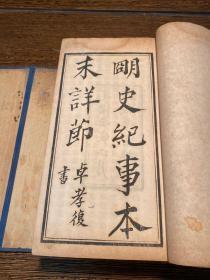 明史紀事本
末詳節
卓孝復
書